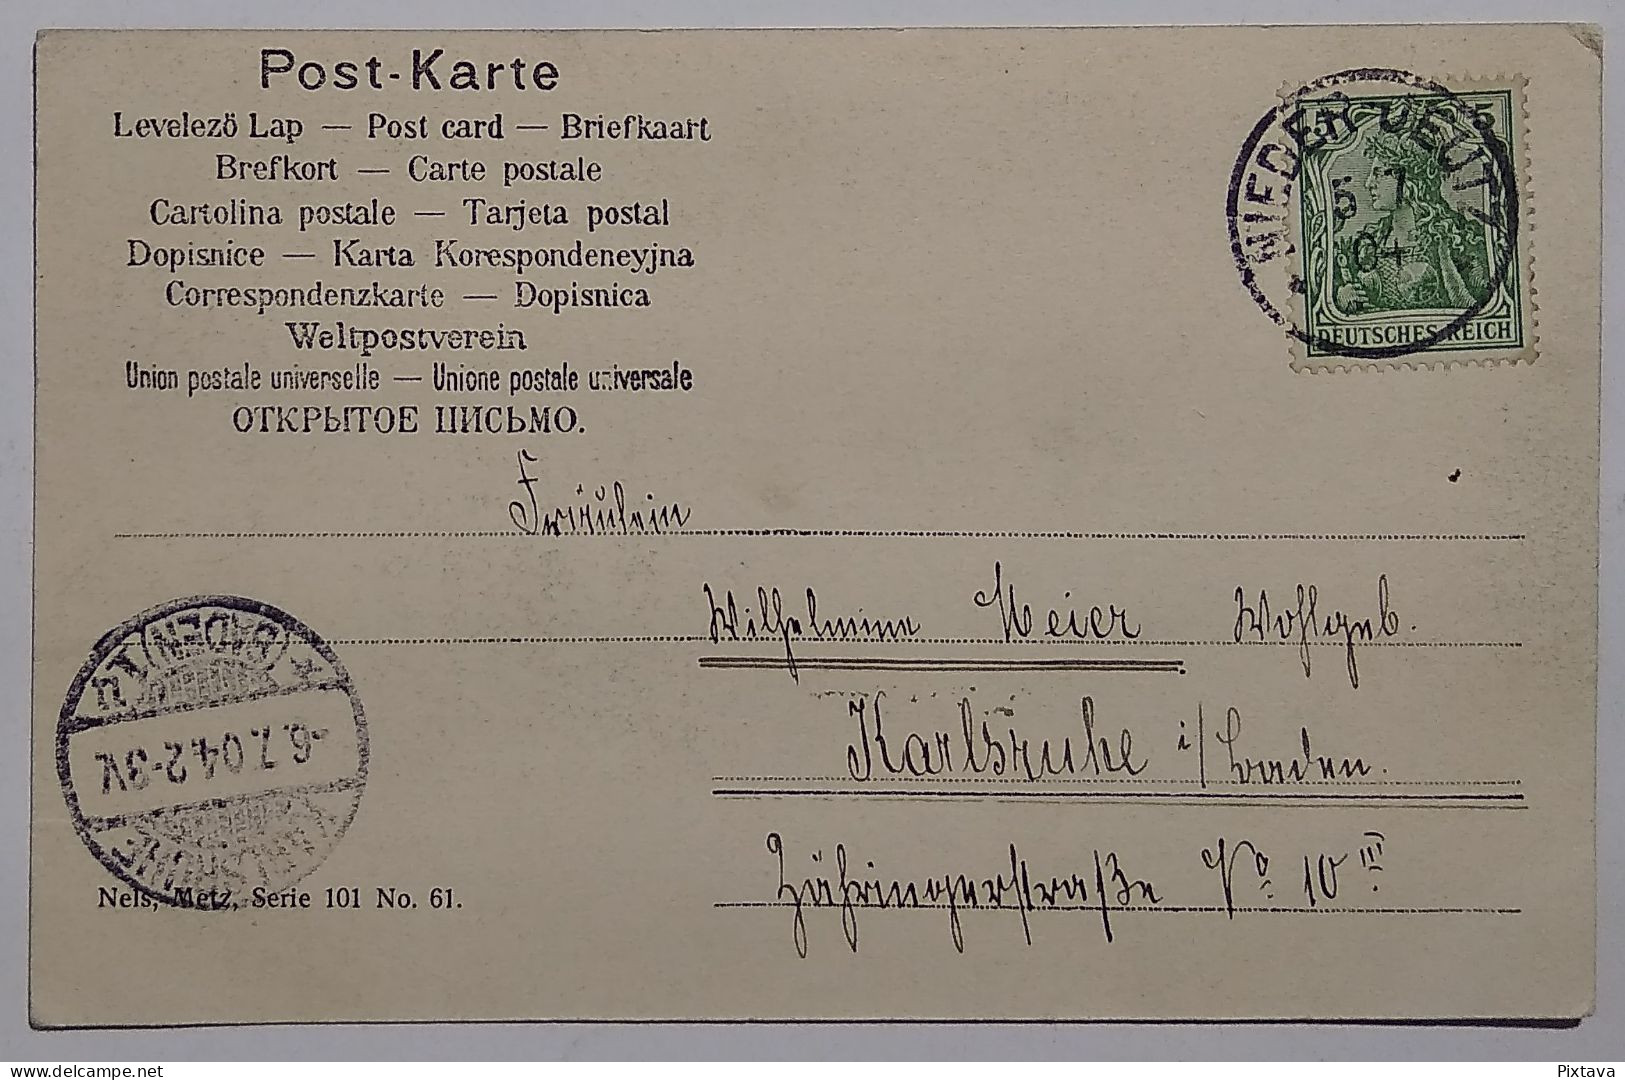 Post-Karte
Levelezö Lap — Post card — Briefkaart
Brefkort — Carte postale
Cartolina postale — Tarjeta postal
Dopisnice — Karta Korespondeneyjna
Correspondenzkarte — Dopisnica
Weltpostverein
Union postale universelle — Unione postale universale
ОТКРЫТОЕ ПИСЬМО.
NIEDER DEUTZ
5 7
04
5 5
DEUTSCHES REICH
Fräulein
Wilhelmine Meier Wohlgeb.
Karlsruhe i/Baden.
Zähringerstraße No 10 III
KARLSRUHE
-6.7.04.2-3V.
(BADEN) 1.
Nels, Metz, Serie 101 No. 61.
Pixtava